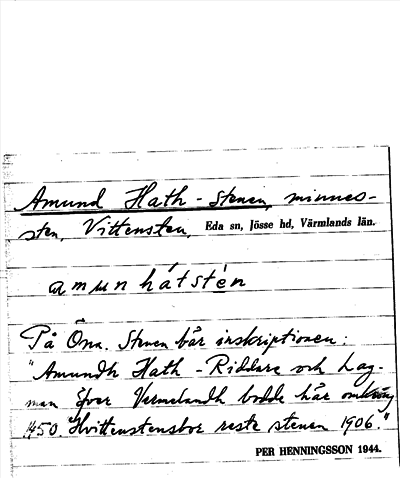 Amund Hath-stenen, minnes-
sten, Vittensten, Eda sn, Jösse hd, Värmlands län.
amun hátstén
På Öna. Stenen bär inskriptionen:
"Amundh Hath - Riddare och Lag-
man öfver Vermelandh bodde här omkring
1450. Hvittenstensbor reste stenen 1906."
PER HENNINGSSON 1944.